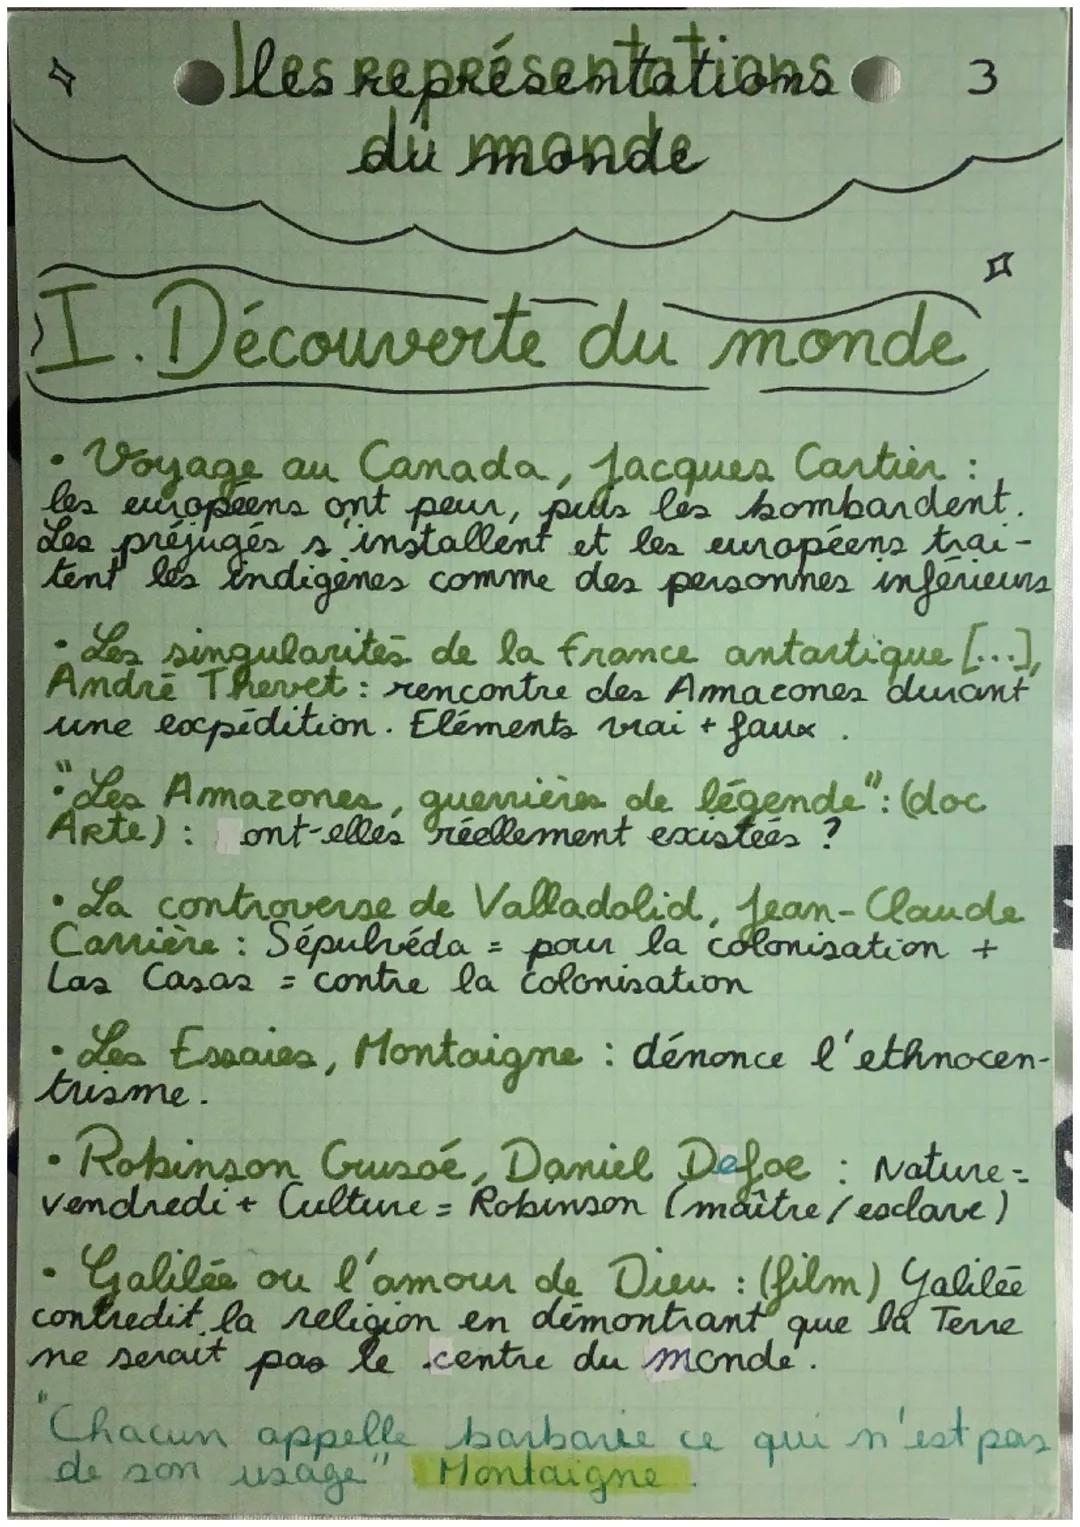 les représentations
3
du monde
I. Découverte du monde
• Voyage au Canada, Jacques Cartier :
les européens ont peur, puis les bombardent.
Les préjugés s'installent et les européens trai-
tent les indigènes comme des personnes inférieurs
• Les singularités de la france antartique [...],
André Thevet : rencontre des Amazones durant
une expédition. Eléments vrai + faux.
• "Les Amazones, guerrières de légende": (doc
ARTe) : ont-elles réellement existées ?
• La controverse de Valladolid, Jean-Claude
Carrière : Sépulvéda = pour la colonisation +
Las Casas = contre la colonisation
• Les Essaies, Montaigne : dénonce l'ethnocen-
trisme.
• Robinson Crusoé, Daniel Defoe : Nature =
vendredi + Culture = Robinson (maître/esclave)
• Galilée ou l'amour de Dieu : (film) Galilée
contredit la religion en démontrant que la Terre
ne serait pas le centre du monde.
"Chacun appelle barbarie ce qui n'est pas
de son usage" Montaigne.